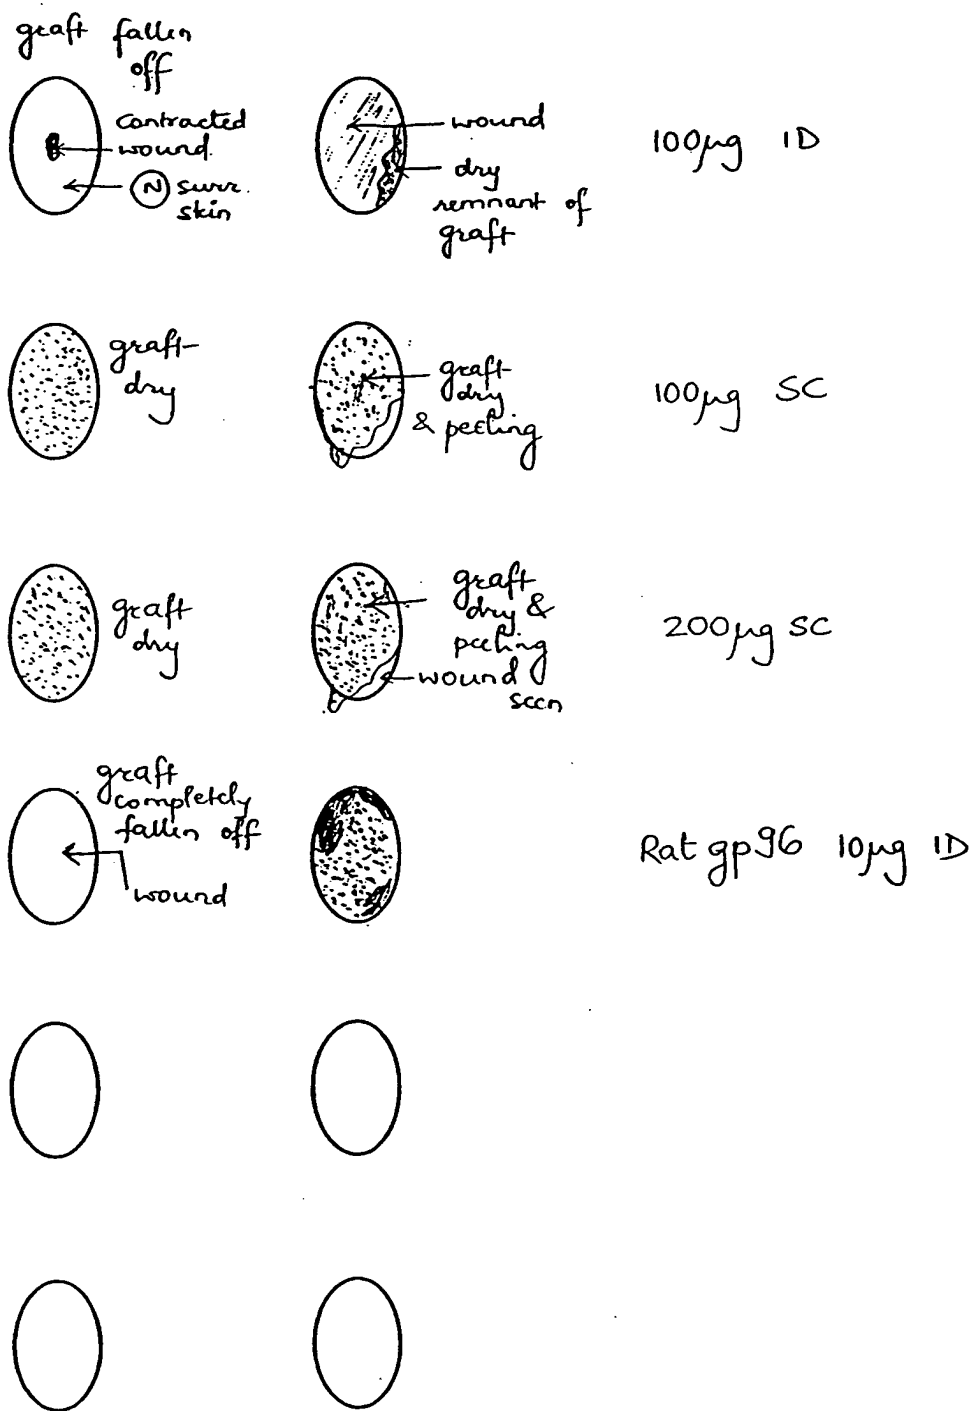 graft fallen
off
contracted
wound.
N surr.
skin
wound
dry
remnant of
graft
100µg ID
graft
dry
graft
dry
& peeling
100µg SC
graft
dry
graft
dry &
peeling
wound
seen
200µg SC
graft
completely
fallen off
wound
Rat gp96 10µg ID